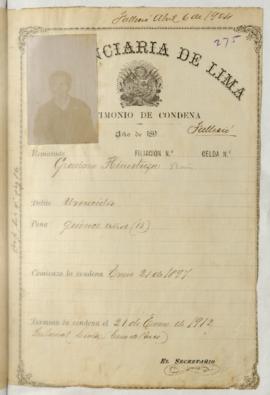 Falleció Abril 6 de 1904
275
NCIARIA DE LIMA
TIMONIO DE CONDENA
Año de 189
Falleció
Rematado
FILIACION N.º
CELDA N.º
Graciano Hinostroza
Delito Homicidio
Pena Quince años (15)
Comienza la condena Enero 21 de 1897
Termina la condena el 21 de Enero de 1912
EL SECRETARIO